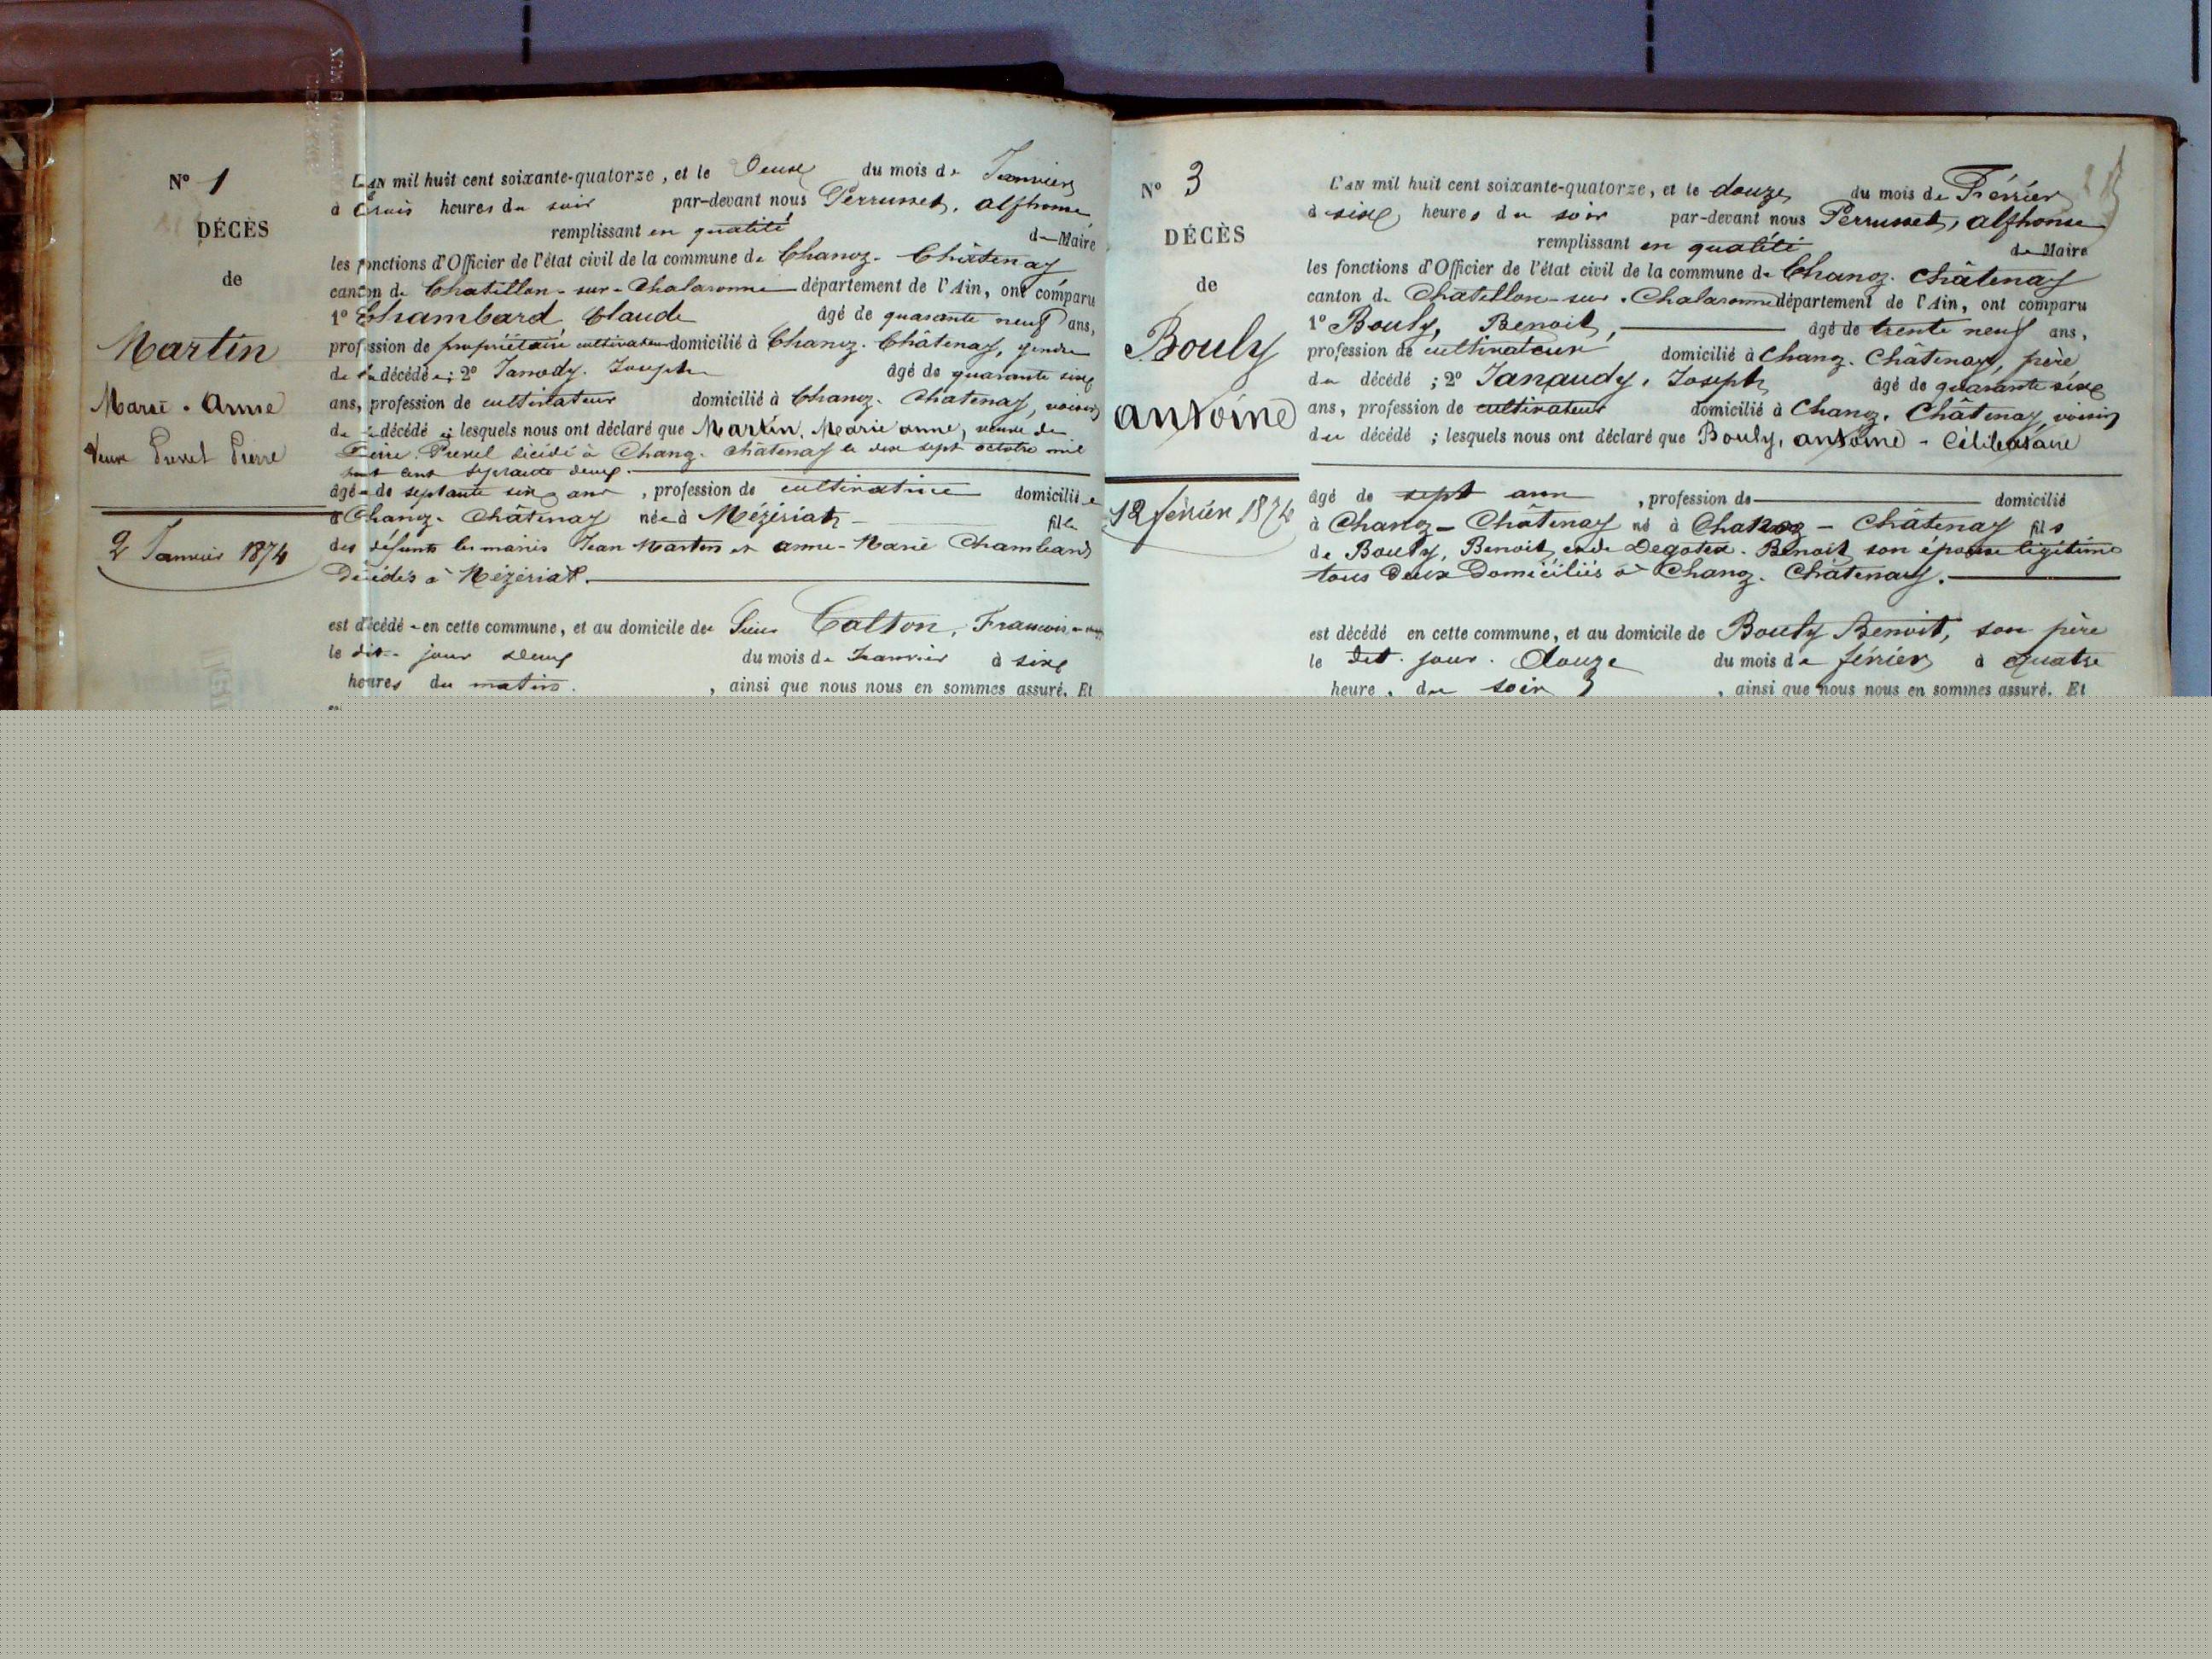 N° 1
DÉCÈS
de
Martin
Marie-Anne
Veuve Pierre
2 Janvier 1874
L'AN mil huit cent soixante-quatorze, et le deux du mois de Janvier
à trois heures du soir par-devant nous Perrusset, Alphonse
remplissant en qualité de Maire
les fonctions d'Officier de l'état civil de la commune de Chanoz-Châtenay
canton de Chatillon-sur-Chalaronne département de l'Ain, ont comparu
1° Chambard, Claude âgé de quarante neuf ans,
profession de propriétaire cultivateur domicilié à Chanoz-Châtenay, gendre
de la décédée; 2° Janody, Joseph âgé de quarante six
ans, profession de cultivateur domicilié à Chanoz-Chatenay, voisin
de la décédée; lesquels nous ont déclaré que Martin, Marie anne, veuve de
Pierre décédé à Chanoz-Châtenay le dix sept octobre mil
huit cent septante deux
âgée de septante cinq ans, profession de cultivatrice domiciliée
à Chanoz-Châtenay née à Mézériat fille
des défunts les mariés Jean Martin et anne-Marie Chambard
Décédés à Mézériat.
est décédée en cette commune, et au domicile de Sieur François
le dit jour deux du mois de Janvier à six
heures du matin, ainsi que nous nous en sommes assuré. Et
N° 3
DÉCÈS
de
Bouly
antoine
12 février 1874
L'AN mil huit cent soixante-quatorze, et le douze du mois de Février
à six heures du soir par-devant nous Perrusset, Alphonse
remplissant en qualité de Maire
les fonctions d'Officier de l'état civil de la commune de Chanoz-Châtenay
canton de Chatillon-sur-Chalaronne département de l'Ain, ont comparu
1° Bouly, Benoit, âgé de trente neuf ans,
profession de cultivateur domicilié à Chanoz-Châtenay, père
du décédé; 2° Janaudy, Joseph âgé de quarante six
ans, profession de cultivateur domicilié à Chanoz-Châtenay, voisin
du décédé; lesquels nous ont déclaré que Bouly, antoine - Célibataire
âgé de sept ans, profession de domicilié
à Chanoz-Châtenay né à Chanoz-Châtenay fils
de Bouly, Benoit et de Benoit son épouse légitime
tous deux Domiciliés à Chanoz-Châtenay.
est décédé en cette commune, et au domicile de Bouly Benoit, son père
le dit jour douze du mois de février à quatre
heure, du soir, ainsi que nous nous en sommes assuré. Et